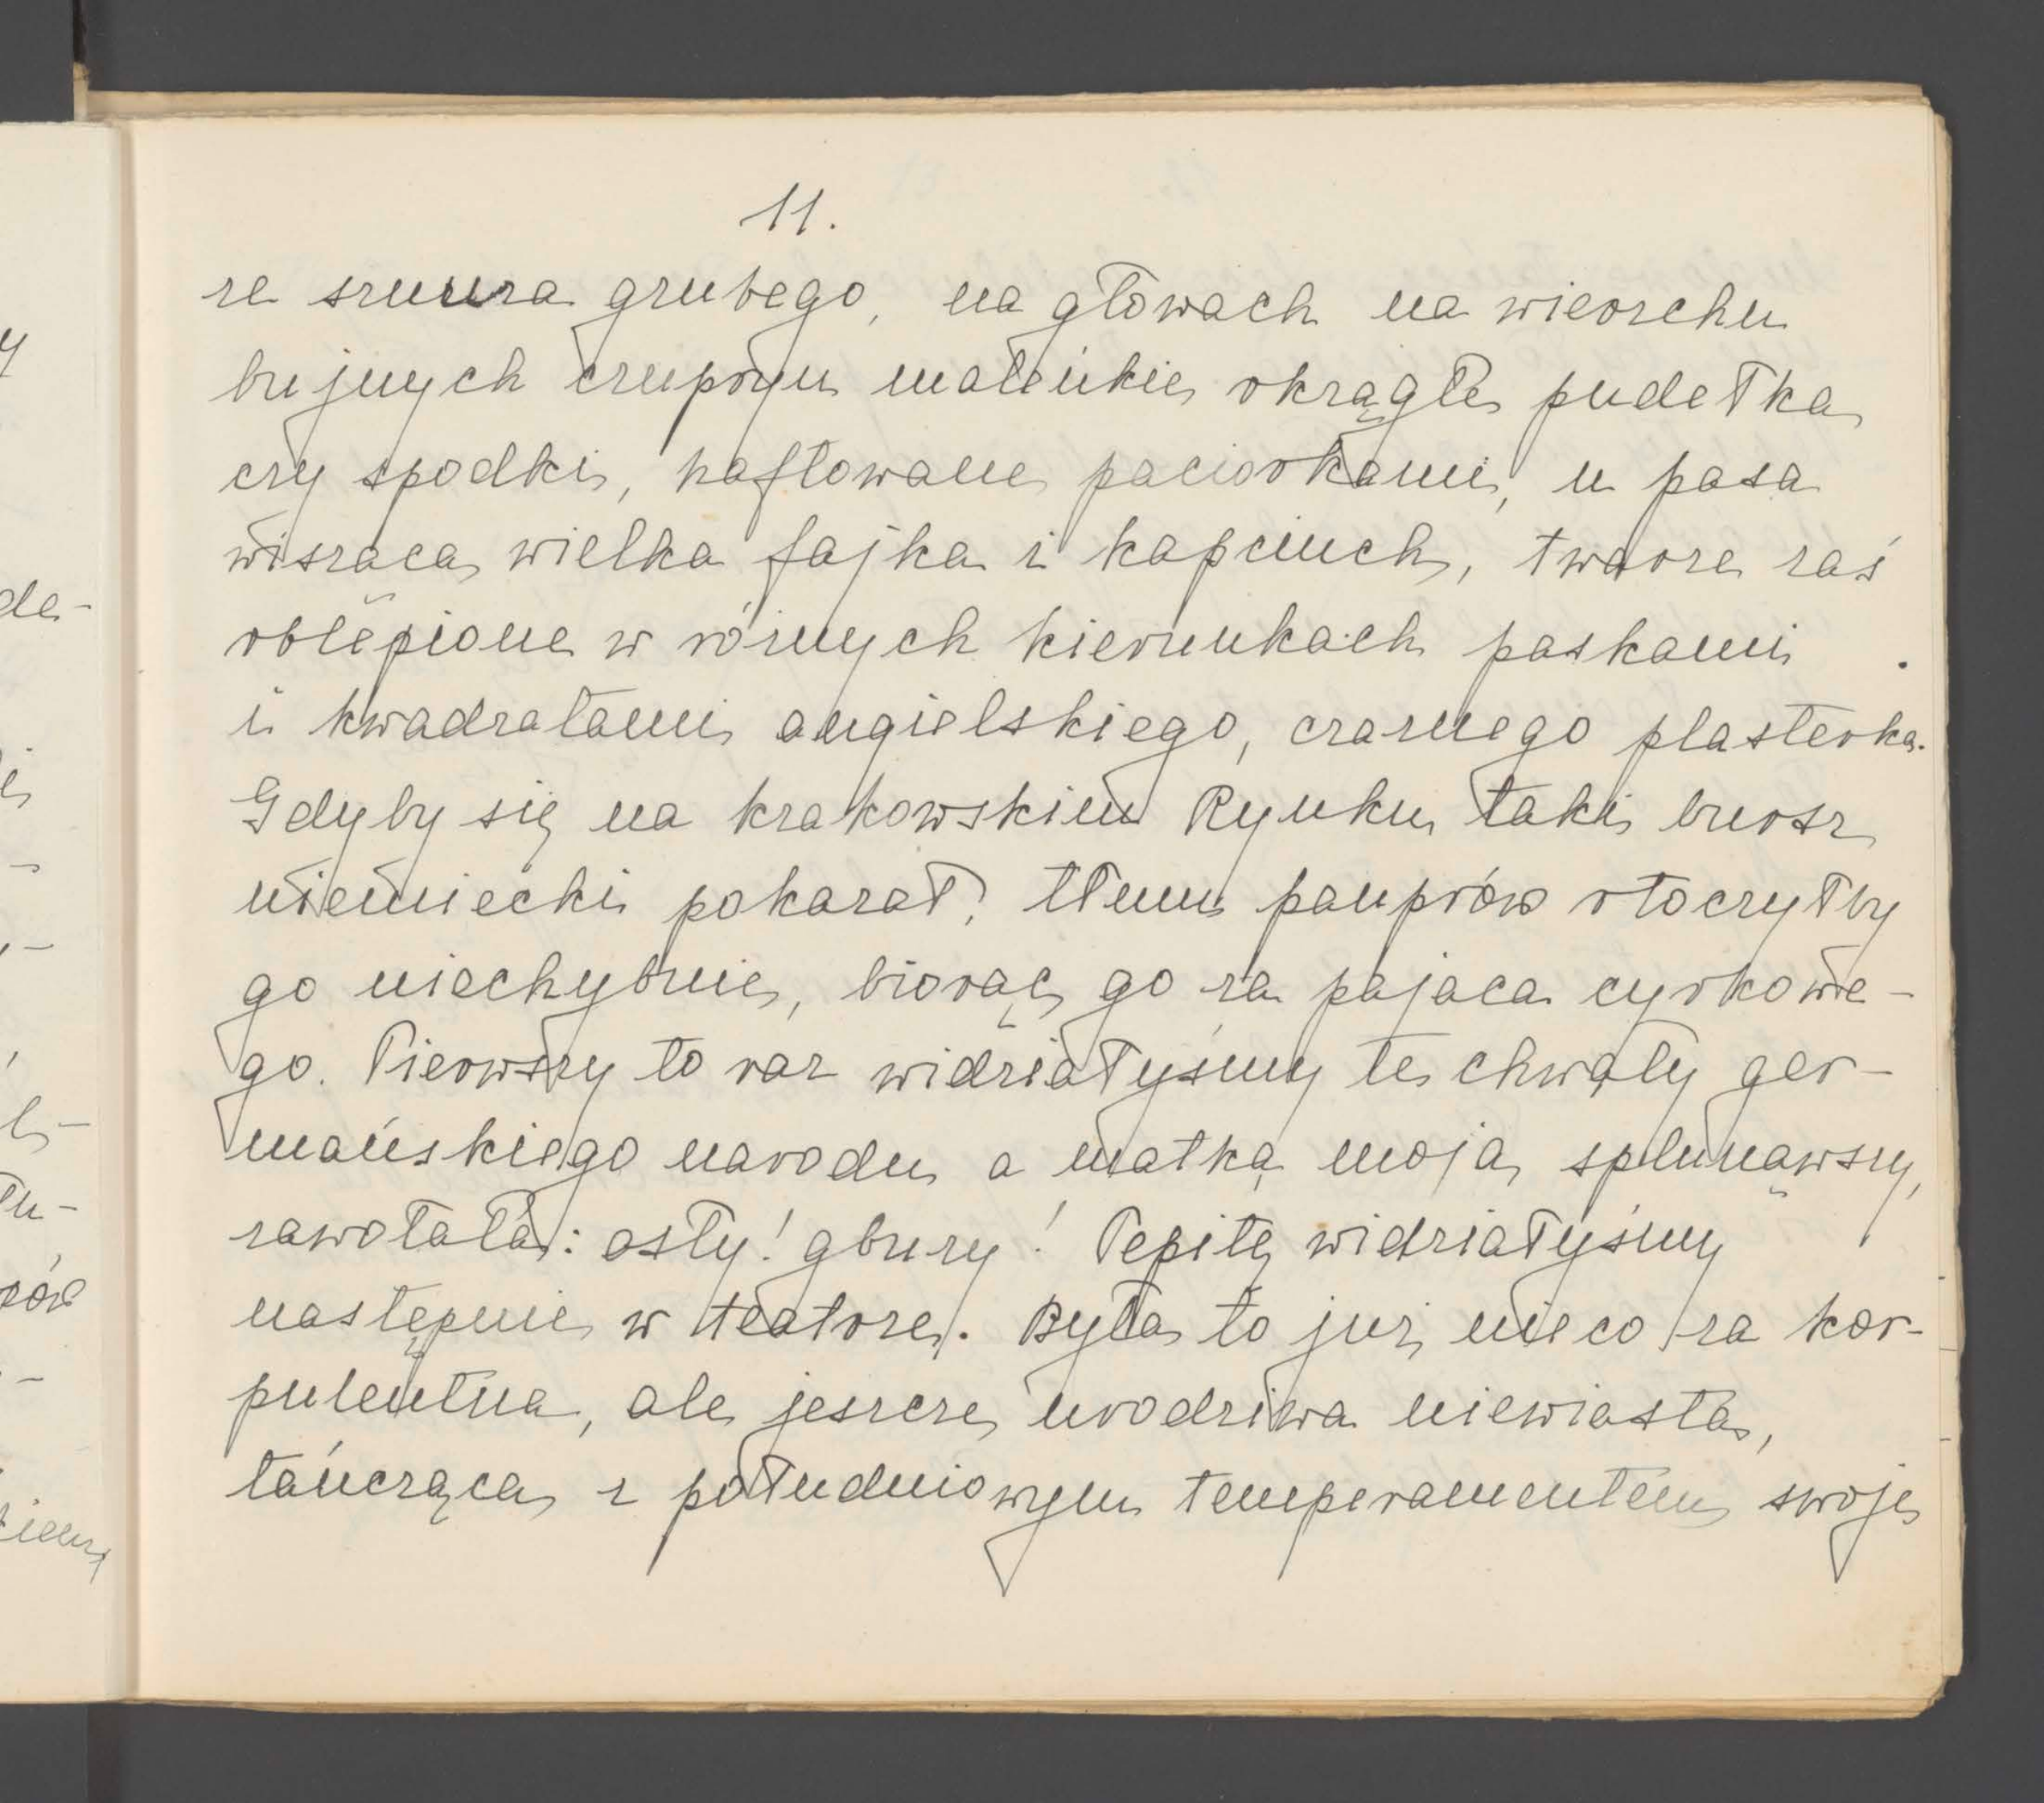 11.
ze sznura grubego, na głowach na wierzchu
bujnych czupryn maleńkie okrągłe pudełka
czy spodki, haftowane paciorkami, u pasa
wisząca wielka fajka i kapciuch, twarze zaś
oblepione w różnych kierunkach paskami
i kwadratami angielskiego, czarnego plasterka.
Gdyby się na krakowskim Rynku taki bursz
niemiecki pokazał, tłum pauprów otoczyłby
go niechybnie, biorąc go za pajaca cyrkowe-
go. Pierwszy to raz widziałyśmy te chwały ger-
mańskiego narodu a matka moja, splunąwszy,
zawołała: osły! gbury! Pepitę widziałyśmy
następnie w teatrze. Była to już nieco za kor-
pulentna, ale jeszcze urodziwa niewiasta,
tańcząca z południowym temperamentem swoje